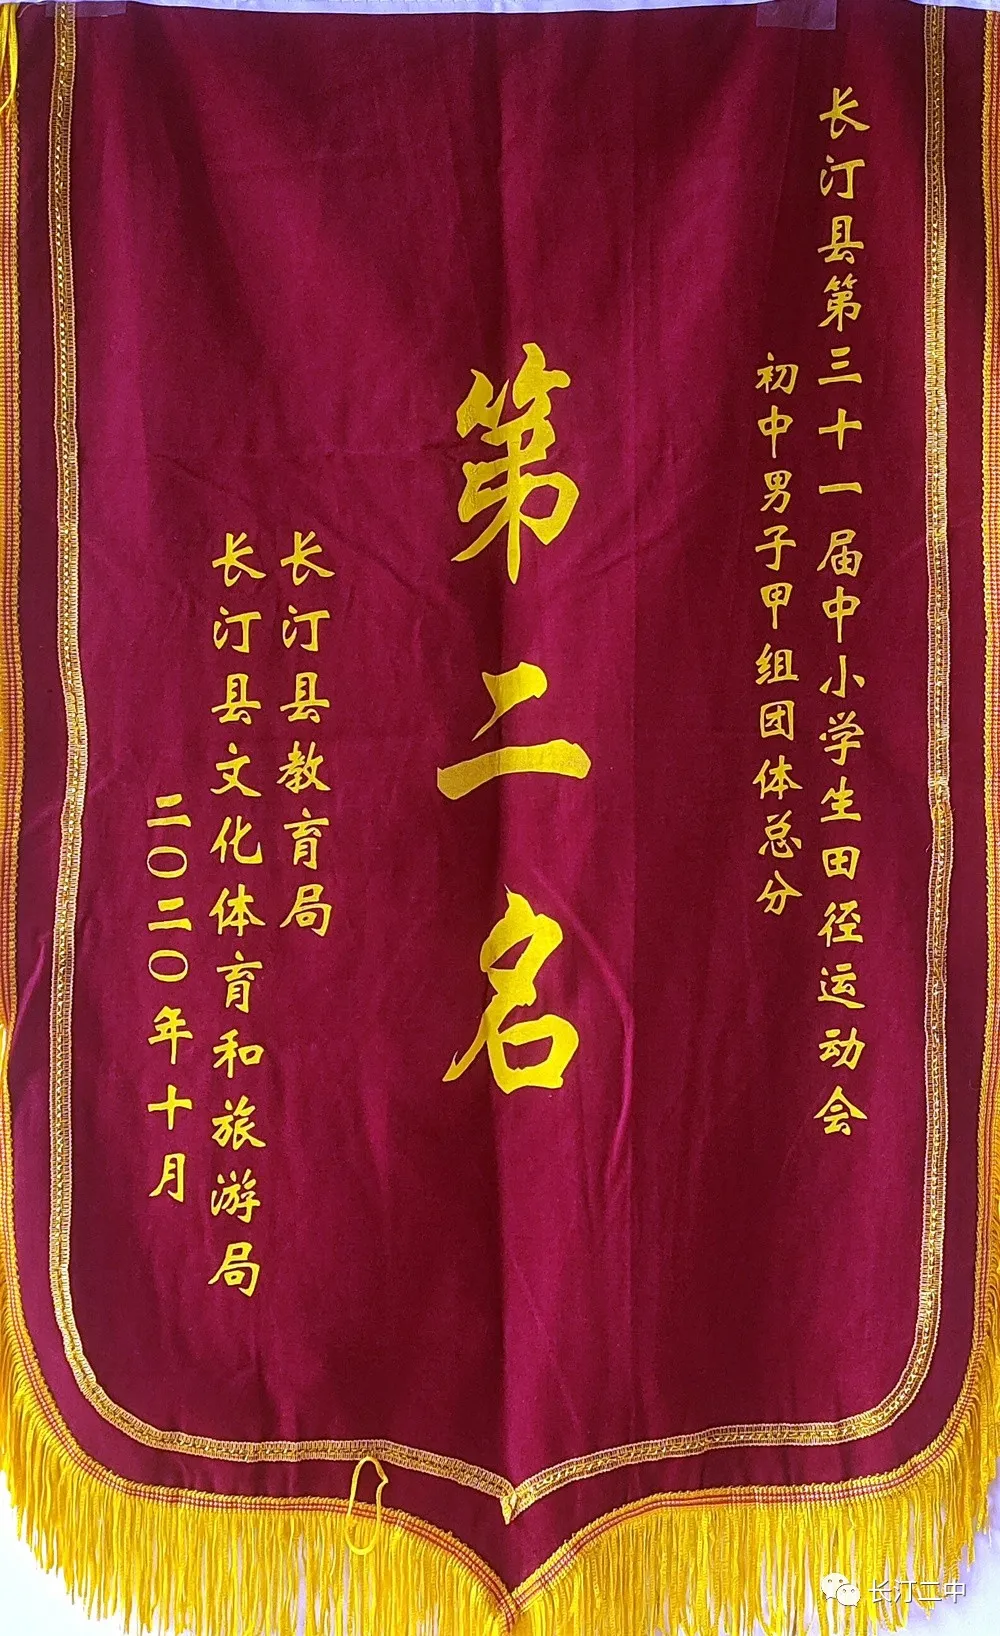 长汀县第三十一届中小学生田径运动会
初中男子甲组团体总分
第二名
长汀县教育局
长汀县文化体育和旅游局
二〇二〇年十月
长汀二中